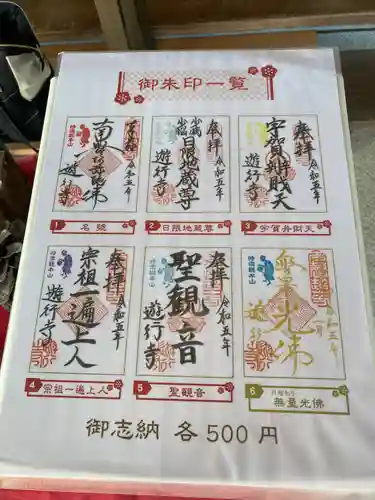 御朱印一覧
南無阿弥陀佛
令和五年
遊行寺
1 名號
奉拝
日限地蔵尊
令和五年
遊行寺
2 日限地蔵尊
奉拝
宇賀弁財天
令和五年
遊行寺
3 宇賀弁財天
奉拝
宗祖一遍上人
令和五年
遊行寺
4 宗祖一遍上人
奉拝
聖観音
令和五年
遊行寺
5 聖観音
無量光佛
令和五年
遊行寺
6 無量光佛
御志納 各500円